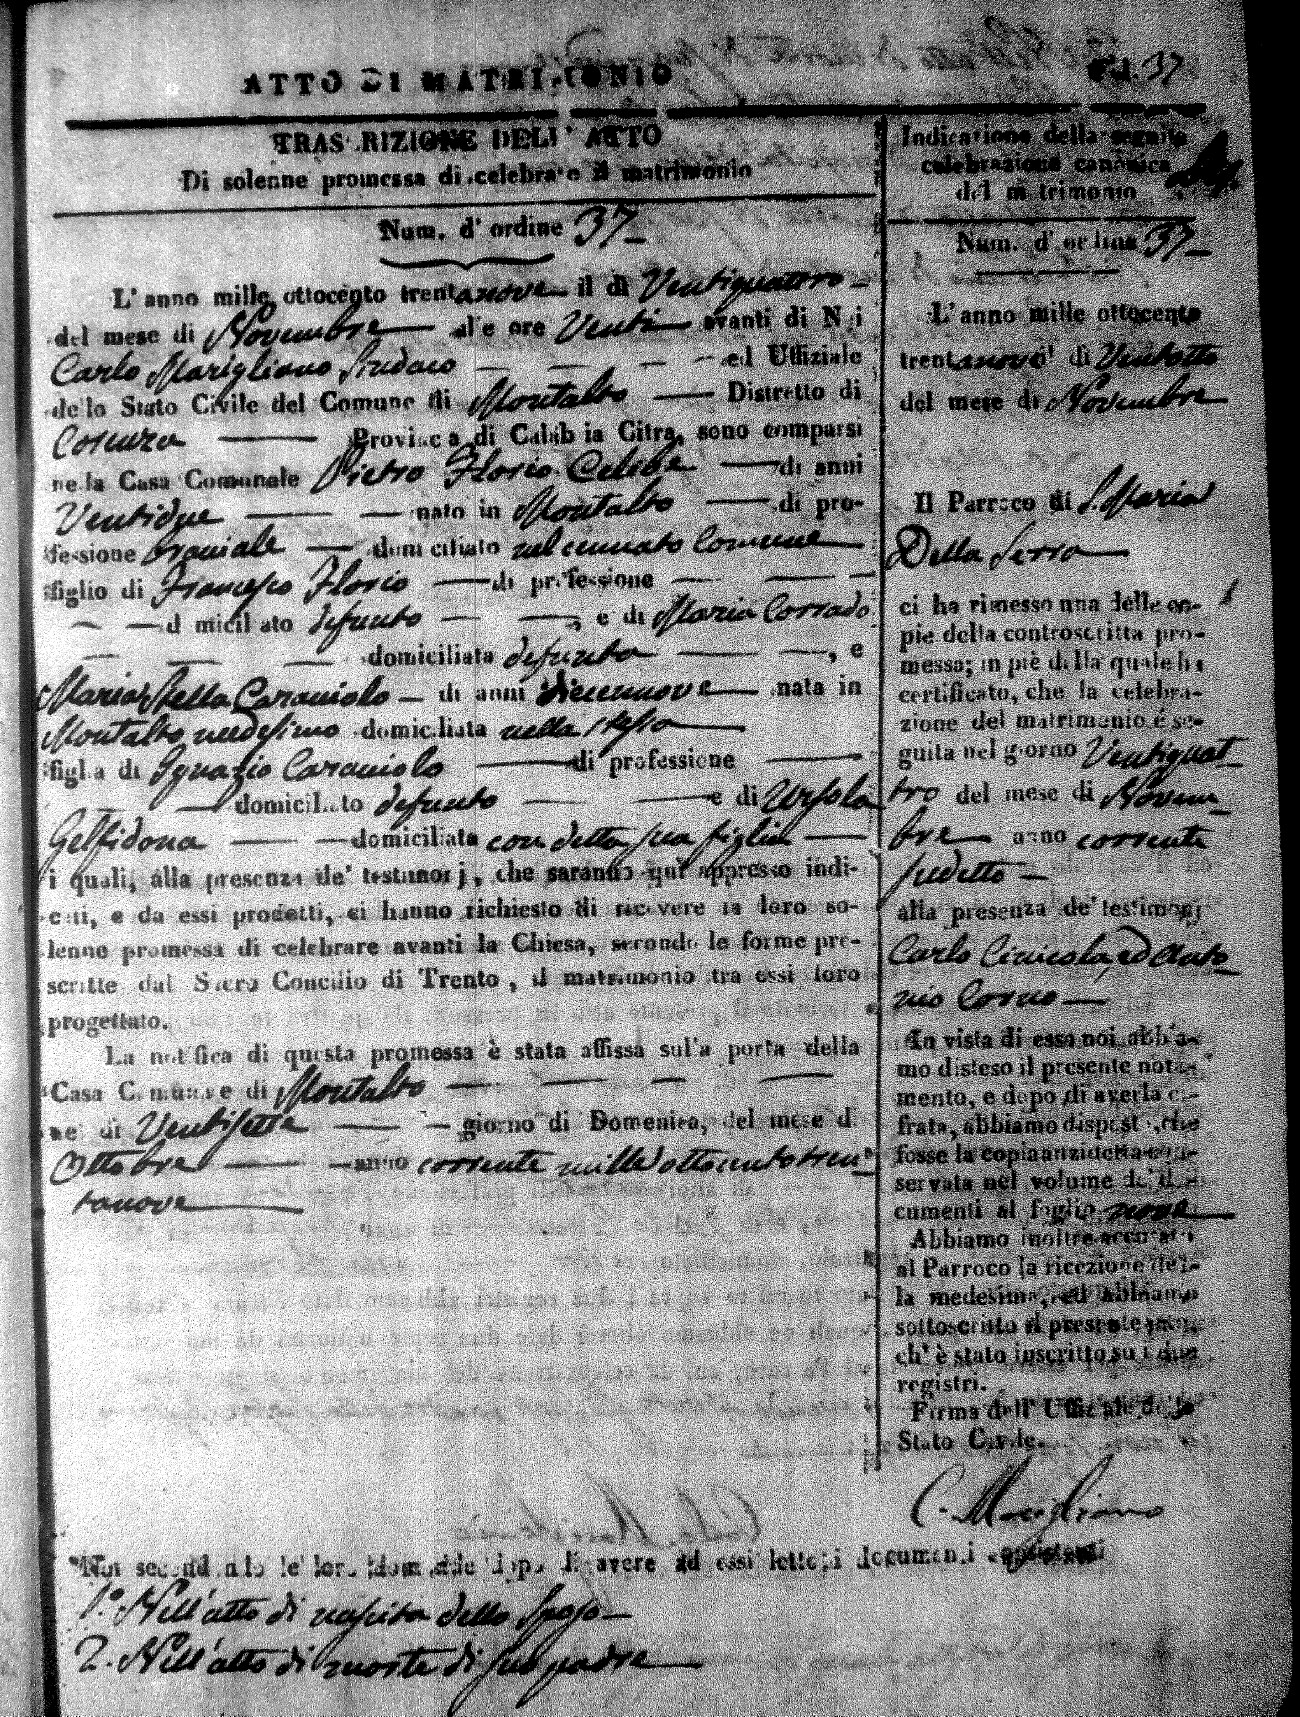 ATTO DI MATRIMONIO
37
TRASCRIZIONE DELL' ATTO
Di solenne promessa di celebrare il matrimonio
Num. d' ordine 37
L' anno mille ottocento trentanove il dì Ventiquattro
del mese di Novembre alle ore Venti avanti di Noi
Carlo Marigliano Sindaco ed Uffiziale
dello Stato Civile del Comune di Montalto Distretto di
Cosenza Provincia di Calabria Citra, sono comparsi
nella Casa Comunale Pietro Florio Celibe di anni
Ventidue nato in Montalto di pro-
fessione domiciliato nel cennato Comune
figlio di Francesco Florio di professione
domiciliato defunto , e di Maria Corrado
domiciliata defunta , e
Maria Stella Caraviolo di anni diecinnove nata in
Montalto medesimo domiciliata nella stessa
figlia di Ignazio Caraviolo di professione
domiciliato defunto e di Orsola
Gelfidona domiciliata con detta sua figlia
i quali, alla presenza de' testimonj, che saranno qui appresso indi-
cati, e da essi prodotti, ci hanno richiesto di ricevere la loro so-
lenne promessa di celebrare avanti la Chiesa, secondo le forme pre-
scritte dal Sacro Concilio di Trento, il matrimonio tra essi loro
progettato.
La notifica di questa promessa è stata affissa sulla porta della
Casa Comunale di Montalto
ne' dì Ventisette giorno di Domenica, del mese d
Ottobre anno corrente mille ottocento tren
tanove
Indicazione della seguita
celebrazione canonica
del matrimonio
Num. d' ordine 37
L' anno mille ottocento
trentanove il dì Ventotto
del mese di Novembre
Il Parroco di S. Maria
Della Serra
ci ha rimesso una delle co-
pie della controscritta pro-
messa; in piè della quale ha
certificato, che la celebra-
zione del matrimonio è se-
guita nel giorno Ventiquat
tro del mese di Novem
bre anno corrente
sudetto
alla presenza de' testimonj
Carlo ed Anto
nio
In vista di essa noi abbia-
mo disteso il presente nota-
mento, e dopo di averla ci-
frata, abbiamo disposto, che
fosse la copia anzidetta con-
servata nel volume de' do-
cumenti al foglio nove
Abbiamo inoltre accusato
al Parroco la ricezione del-
la medesima, ed abbiamo
sottoscritto il presente
ch' è stato inscritto su i due
registri.
Firma dell' Uffiziale dello
Stato Civile.
C. Marigliano
Noi secondando le loro domande dopo di avere ad essi letto i documenti
1.° Nell'atto di nascita dello Sposo
2. Nell'atto di morte di suo padre